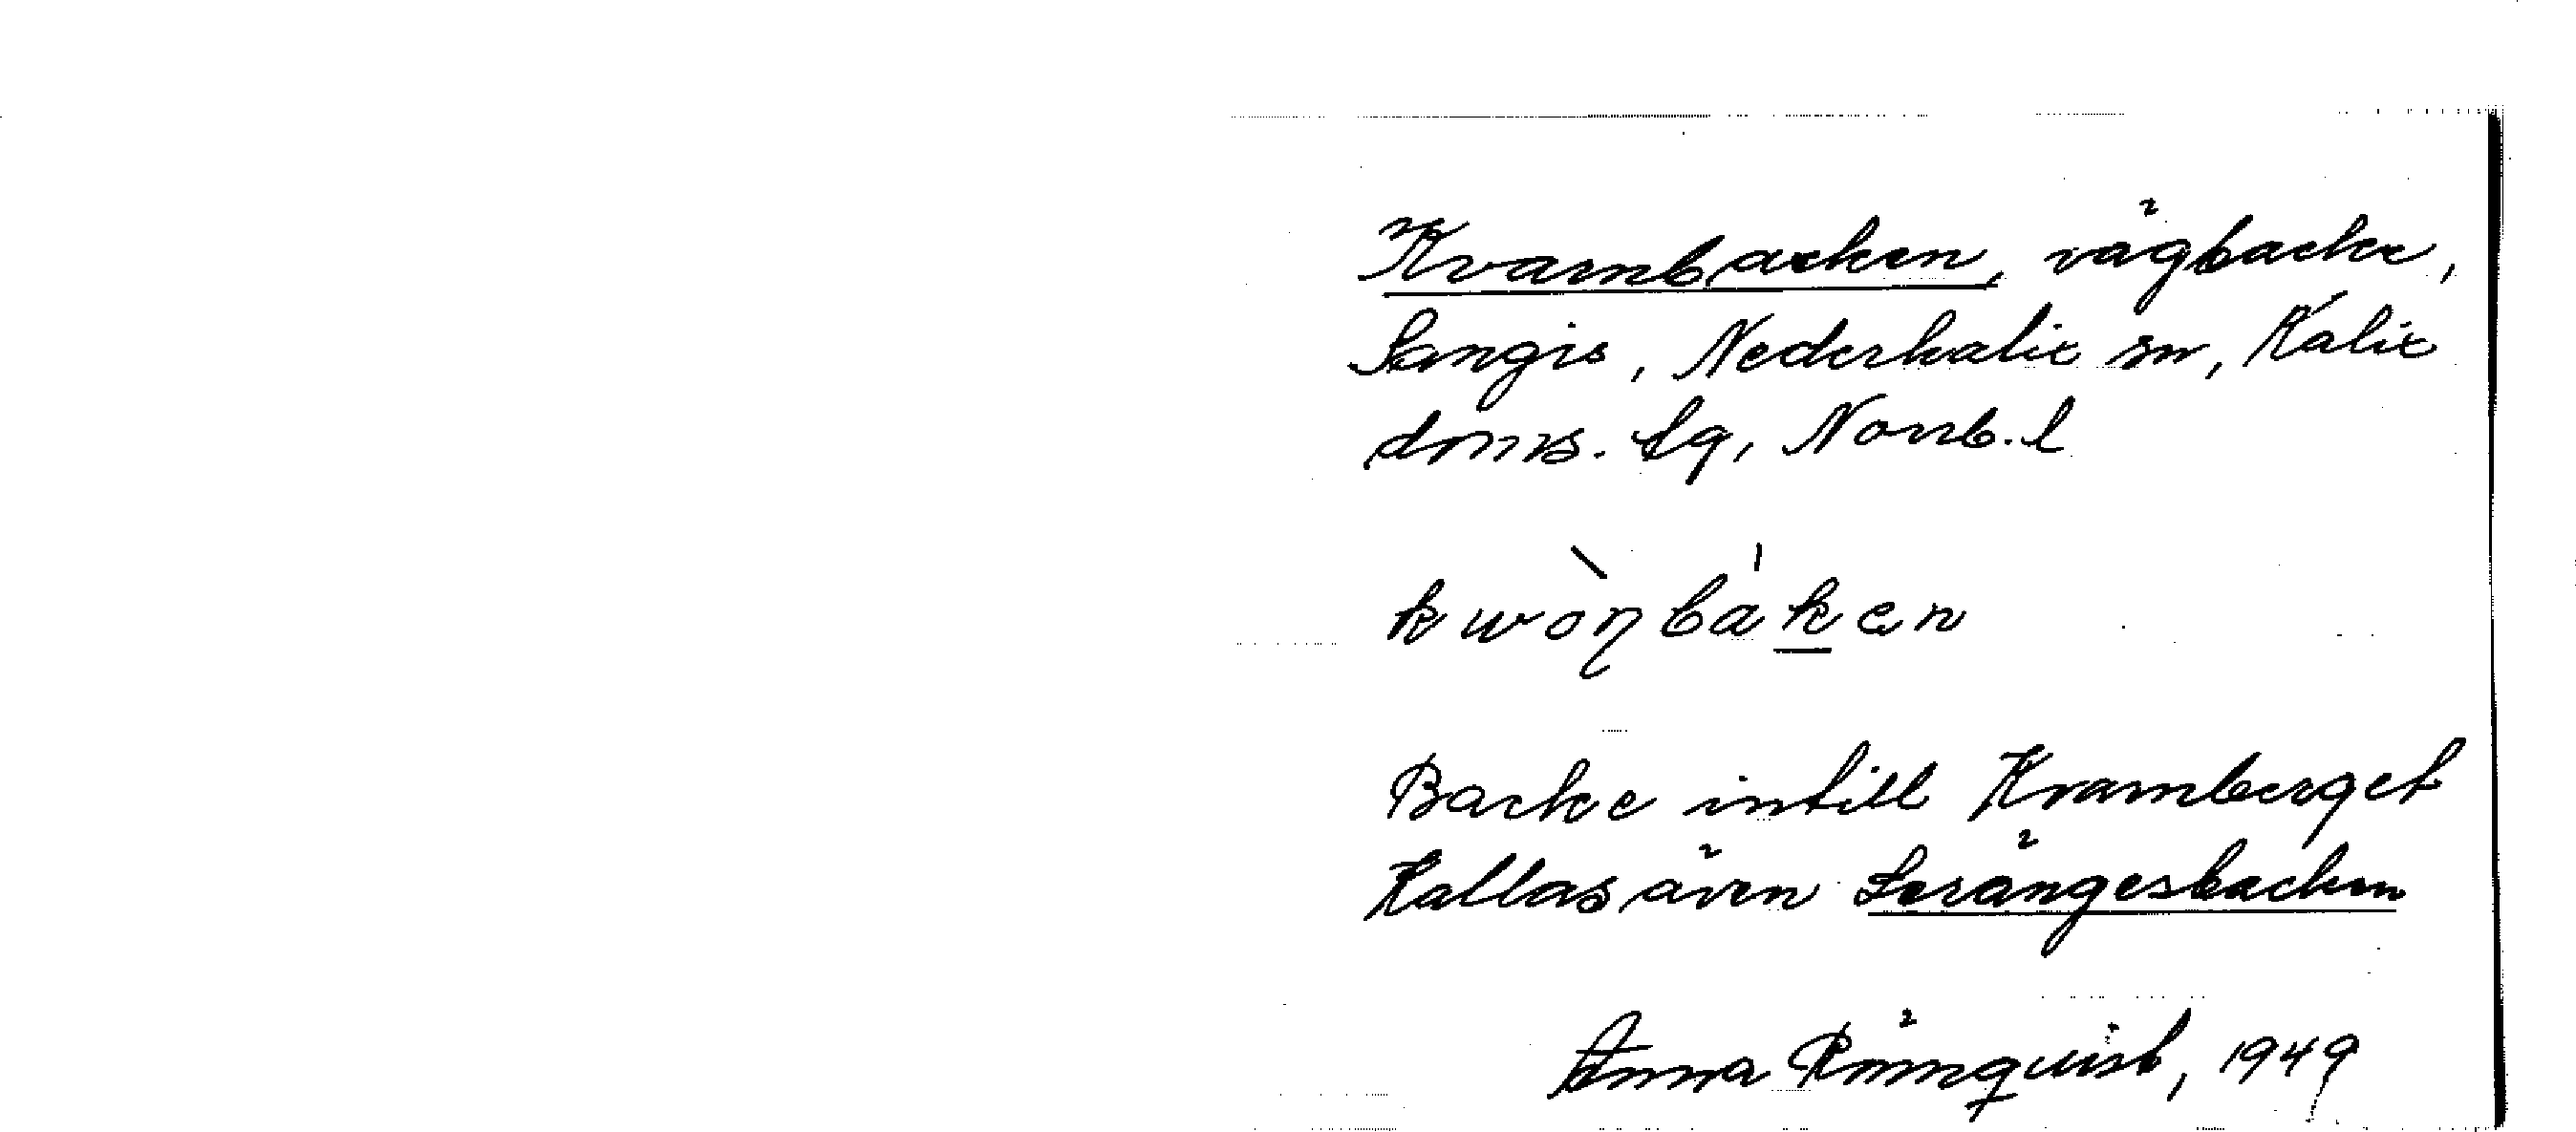 Kvarnbacken, vägbacke,
Sangis, Nederkalix sn, Kalix
doms. lg, Norrb. l
kwòɳbàken
Backe intill Kvarnberget
Kallas även Lerängesbacken
Anna Rönnquist, 1949